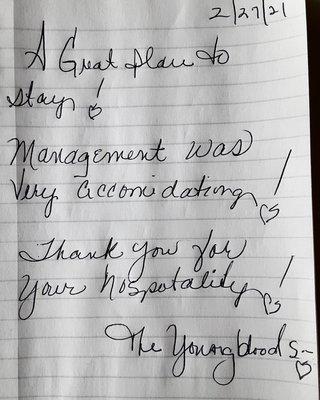 2/27/21
A Great place to
stay!
Management was
Very accomidating!
Thank you for
Your hospotality!
The Youngbloods-